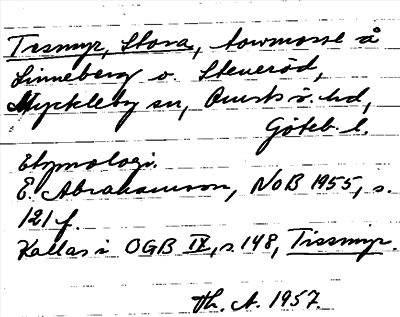 Tresmyr, Stora, torvmosse å
Linneberg o. Steneröd,
Myckleby sn, Orusts v. hd,
Göteb. l.
Etymologi.
E. Abrahamson, NoB 1955, s.
121 f.
Kallas i OGB IX, s. 148, Tissmyr.
Th. A. 1957.